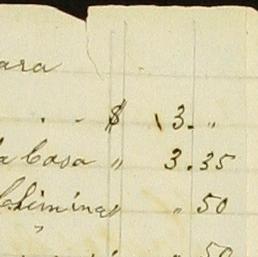 ara
. - $ 3. "
la Casa " 3.35
Chiminea " " 50
"
50